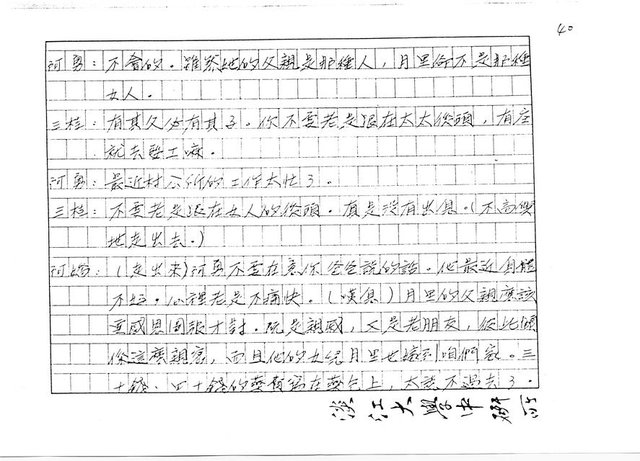 40
阿勇：不會的。雖然她的父親是那種人，月里倒不是那種
女人。
三桂：有其父必有其子。你不要老是跟在太太後頭，有空
就去整工嘛。
阿勇：最近村公所的工作太忙了。
三桂：不要老是跟在女人的後頭。真是沒有出息。(不高興
地走出去。)
阿嬌：(走出來)阿勇不要在意你爸爸說的話。他最近身體
不好。心裡老是不痛快。(嘆息)月里的父親應該
要感恩圖報才對。既是親戚，又是老朋友，彼此關
係這麼親密，而且他的女兒月里也嫁到咱們家。三
十錢、四十錢的藥 在藥包上，太說不過去了。
淡江大學中研所